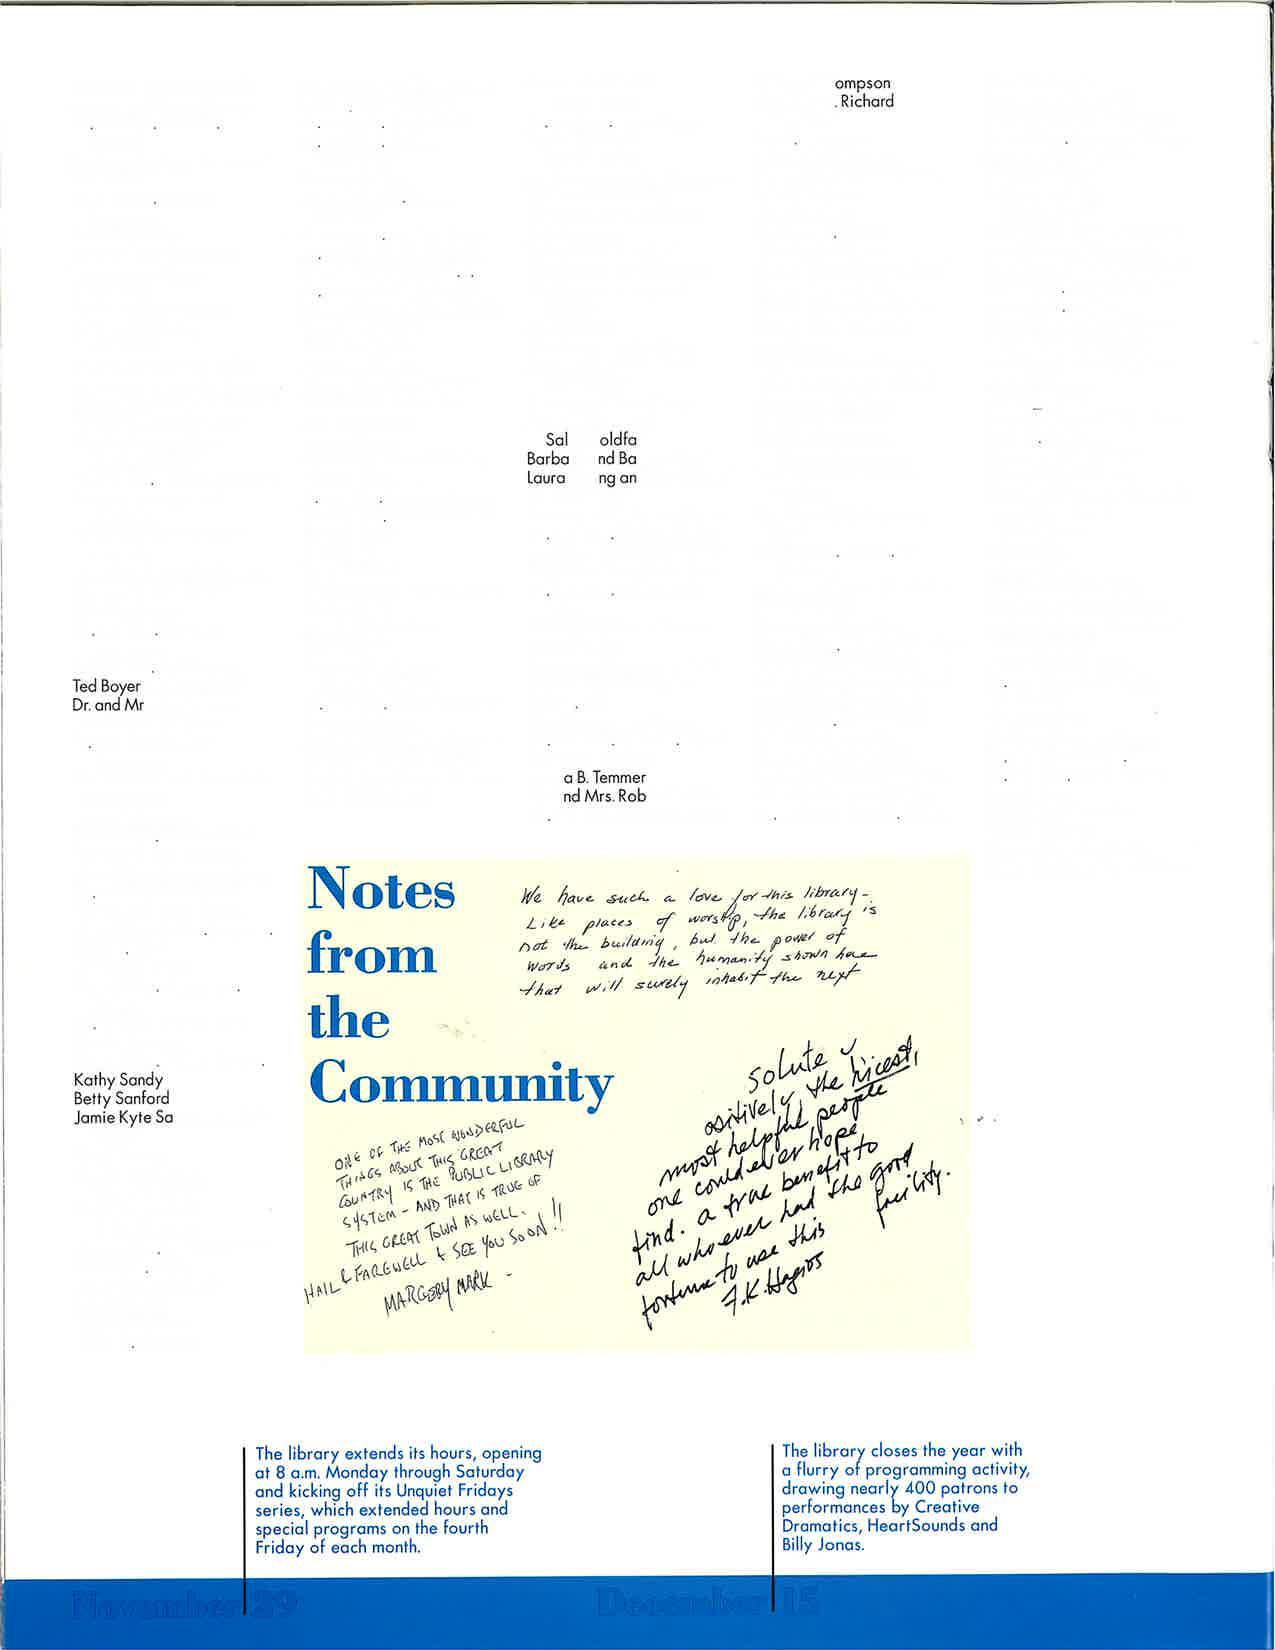 ompson
. Richard
Sal oldfa
Barba nd Ba
Laura ng an
Ted Boyer
Dr. and Mr
a B. Temmer
nd Mrs. Rob
Kathy Sandy
Betty Sanford
Jamie Kyte Sa
Notes
from
the
Community
We have such a love for this library -
Like places of worship, the library is
not the building, but the power of
words and the humanity shown here
that will surely inhabit the next
solute
ositively the nicest,
most helpful people
one could ever hope
find. a true benefit to
all who ever had the good
fortune to use this facility.
F.K. Hagios
ONE OF THE MOST WONDERFUL
THINGS ABOUT THIS GREAT
COUNTRY IS THE PUBLIC LIBRARY
SYSTEM - AND THAT IS TRUE OF
THIS GREAT TOWN AS WELL.
HAIL & FAREWELL & SEE YOU SOON!!
MARGERY MARK -
The library extends its hours, opening
at 8 a.m. Monday through Saturday
and kicking off its Unquiet Fridays
series, which extended hours and
special programs on the fourth
Friday of each month.
The library closes the year with
a flurry of programming activity,
drawing nearly 400 patrons to
performances by Creative
Dramatics, HeartSounds and
Billy Jonas.
November 29
December 15